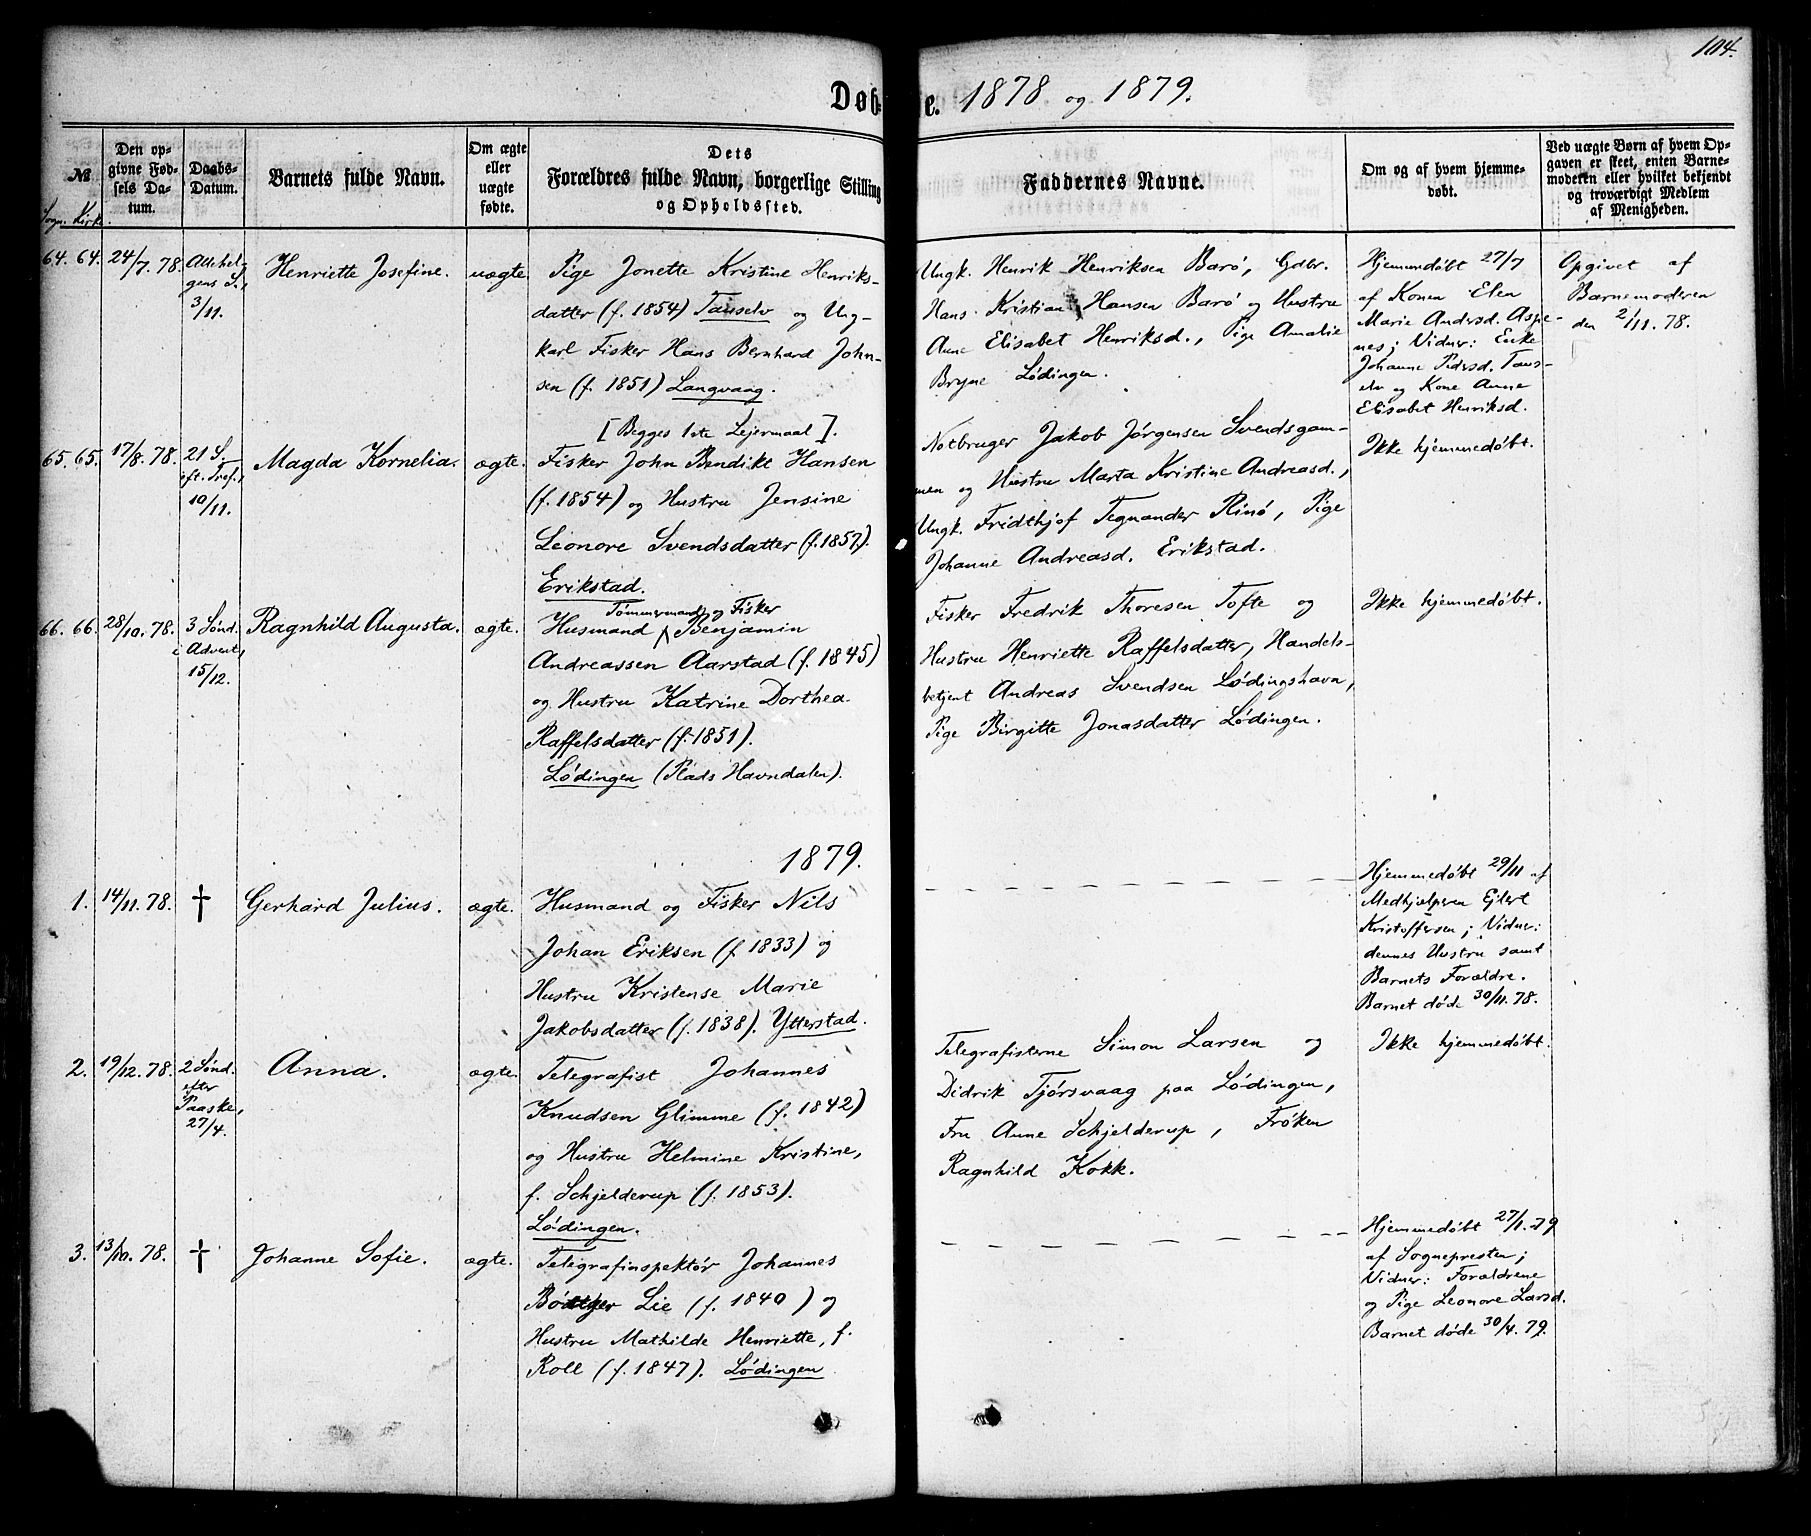 104.
Døb- e. 1878 og 1879.
№
Sogn. Kirke.
Den op-
givne Fød-
sels Da-
tum.
Daabs-
Datum.
Barnets fulde Navn.
Om ægte
eller
uægte
fødte.
Dets
Forældres fulde Navn, borgerlige Stilling
og Opholdssted.
Faddernes Navne.
Om og af hvem hjemme-
døbt.
Ved uægte Børn af hvem Op-
gaven er skeet, enten Barne-
moderen eller hvilket bekjendt
og troværdigt Medlem
af Menigheden.
64. 64.
24/7. 78.
Allehel-
gens S.,
3/11.
Henriette Josefine.
uægte.
Pige Jonette Kristine Henriks-
datter (f. 1854) Tauselv og Ung-
karl Fisker Hans Bernhard John-
sen (f. 1851) Langvaag.
[Begges 1ste Lejermaal].
Ungk. Henrik Henriksen Barø, Gdbr.
Hans Kristian Hansen Barø og Hustru
Anne Elisabet Henriksd., Pige Amalie
Bryne Lødingen.
Hjemmedøbt 27/7
af Konen Elen
Marie Andersd. Aspe-
nes; Vidner: Enke
Johanne Pedersd. Taus-
elv og Kone Anne
Elisabet Henriksd.
Opgivet af
Barnemoderen
den 2/11. 78.
65. 65.
17/8. 78.
21 S.
eft. Tref.,
10/11.
Magda Kornelia.
ægte.
Fisker John Bendikt Hansen
(f. 1854) og Hustru Jensine
Leonore Svendsdatter (f. 1857).
Erikstad.
Notbruger Jakob Jørgensen Svendsgam-
men og Hustru Marta Kristine Andreasd.,
Ungk. Fridthjof Tegnander Rinø, Pige
Johanne Andreasd. Erikstad.
Ikke hjemmedøbt.
66. 66.
28/10. 78.
3 Sønd.
i Advent,
15/12.
Ragnhild Augusta.
ægte.
Tømmermand og Fisker
Husmand Benjamin
Andreassen Aarstad (f. 1845)
og Hustru Katrine Dorthea
Raffelsdatter (f. 1851).
Lødingen (Plads Havndalen).
Fisker Fredrik Thoresen Tofte og
Hustru Henriette Raffelsdatter, Handels-
betjent Andreas Svendsen Lødingshavn,
Pige Birgitte Jonasdatter Lødingen.
Ikke hjemmedøbt.
1879.
1.
14/11. 78.
†
Gerhard Julius.
ægte.
Husmand og Fisker Nils
Johan Eriksen (f. 1833) og
Hustru Kristense Marie
Jakobsdatter (f. 1838). Ytterstad.
Hjemmedøbt 29/11 af
Medhjælperen Ejlert
Kristoffersen; Vidner:
dennes Hustru samt
Barnets Forældre.
Barnet døde 30/11. 78.
2.
19/12. 78.
2 Sønd.
efter
Paaske,
27/4.
Anna.
ægte.
Telegrafist Johannes
Knudsen Glimme (f. 1842)
og Hustru Helmine Kristine,
f. Schjelderup (f. 1853).
Lødingen.
Telegrafisterne Simon Larsen og
Didrik Tjørsvaag paa Lødingen,
Fru Anne Schjelderup, Frøken
Ragnhild Kokk.
Ikke hjemmedøbt.
3.
13/10. 78.
†
Johanne Sofie.
ægte.
Telegrafinspektør Johannes
Bøttger Lie (f. 1840) og
Hustru Mathilde Henriette, f.
Roll (f. 1847). Lødingen
Hjemmedøbt 27/1. 79
af Sognepresten;
Vidner: Forældrene
og Pige Leonore Larsd.
Barnet døde 30/4. 79.